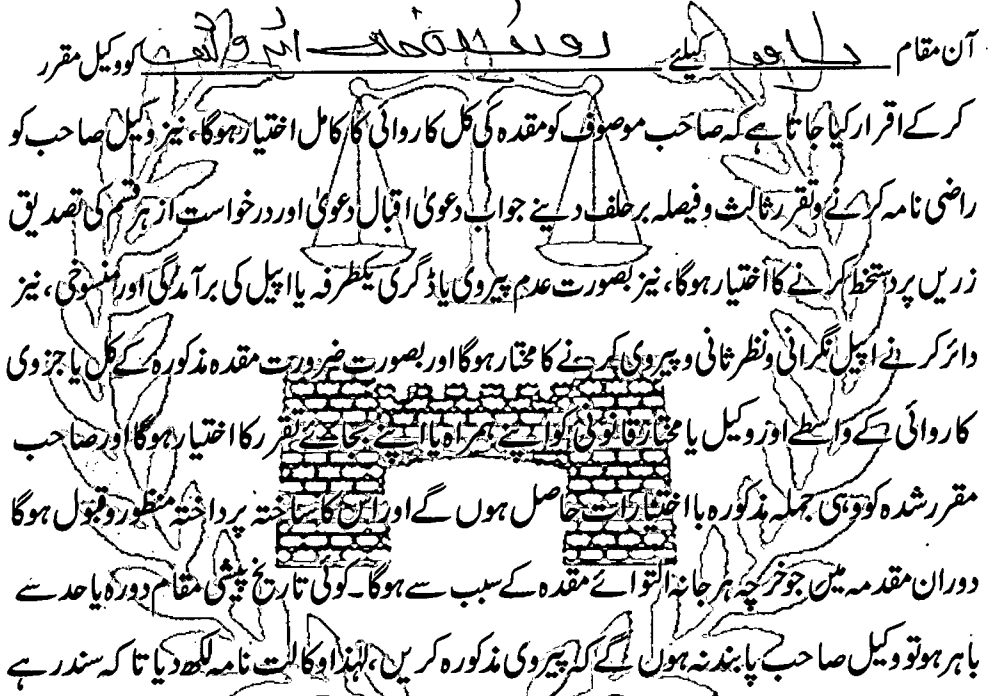 آن مقام پشاور کیلئے کو وکیل مقرر
کر کے اقرار کیا جاتا ہے کہ صاحب موصوف کو مقدہ کی کل کاروائی کا کامل اختیار ہوگا، نیز وکیل صاحب کو
راضی نامہ کرنے وتقرر ثالث وفیصلہ برحلف دینے جواب دعویٰ اقبال دعویٰ اور درخواست از ہر قسم کی تصدیق
زریں پر دستخط کرنے کا اختیار ہوگا، نیز بصورت عدم پیروی یا ڈگری یکطرفہ یا اپیل کی برآمدگی اور منسوخی، نیز
دائر کرنے اپیل نگرانی ونظر ثانی و پیروی کرنے کا مختار ہوگا اور بصورت ضرورت مقدہ مذکورہ کے کل یا جزوی
کاروائی کے واسطے اور وکیل یا مختار قانونی کو اپنے ہمراہ یا اپنے بجائے تقرر کا اختیار ہوگا اور صاحب
مقرر شدہ کو وہی جملہ مذکورہ با اختیارات حاصل ہوں گے اور اس کا ساختہ پرداختہ منظور وقبول ہوگا
دوران مقدمہ میں جو خرچہ ہر جانہ التوائے مقدہ کے سبب سے ہوگا۔ کوئی تاریخ پیشی مقام دورہ یا حد سے
باہر ہو تو وکیل صاحب پابند نہ ہوں گے کہ پیروی مذکورہ کریں، لہٰذا وکالت نامہ لکھ دیا تا کہ سندر ہے